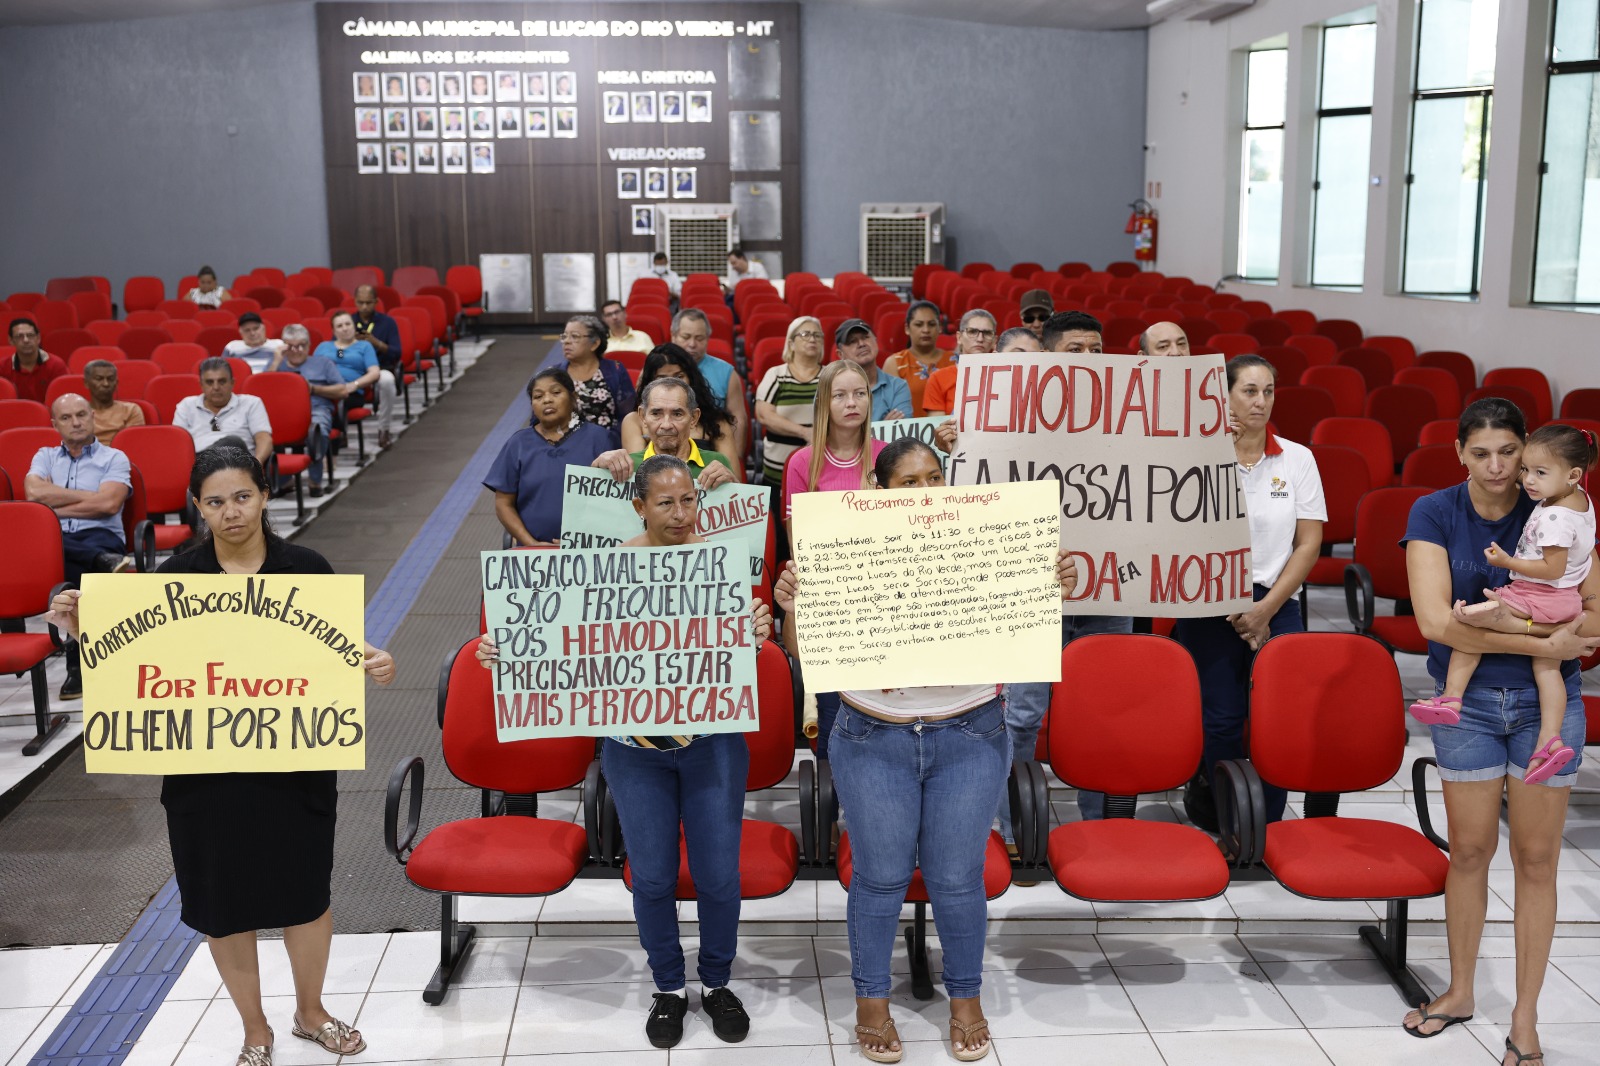 CÂMARA MUNICIPAL DE LUCAS DO RIO VERDE - MT
GALERIA DOS EX-PRESIDENTES
MESA DIRETORA
VEREADORES
CORREMOS RISCOS NAS ESTRADAS
POR FAVOR
OLHEM POR NÓS
CANSAÇO, MAL-ESTAR
SÃO FREQUENTES
PÓS HEMODIALISE
PRECISAMOS ESTAR
MAIS PERTO DE CASA
PRECISAM
MODIÁLISE
SEM TO
Precisamos de mudanças
Urgente!
É insustentável sair às 11:30 e chegar em casa
às 22:30, enfrentando desconforto e riscos à saú
de Pedimos a transferência para um local mais
Próximo, como Lucas do Rio Verde, mas como não
tem em Lucas seria Sorriso, onde podemos ter
melhores condições de atendimento.
As cadeiras em Sinop são inadequadas, fazendo-nos ficar
horas com as pernas penduradas, o que agrava a situação
Além disso, a possibilidade de escolher horários me-
lhores em Sorriso evitaria acidentes e garantiria
nossa segurança
LÍVIO
HEMODIÁLISE
É A NOSSA PONTE
DA E A MORTE